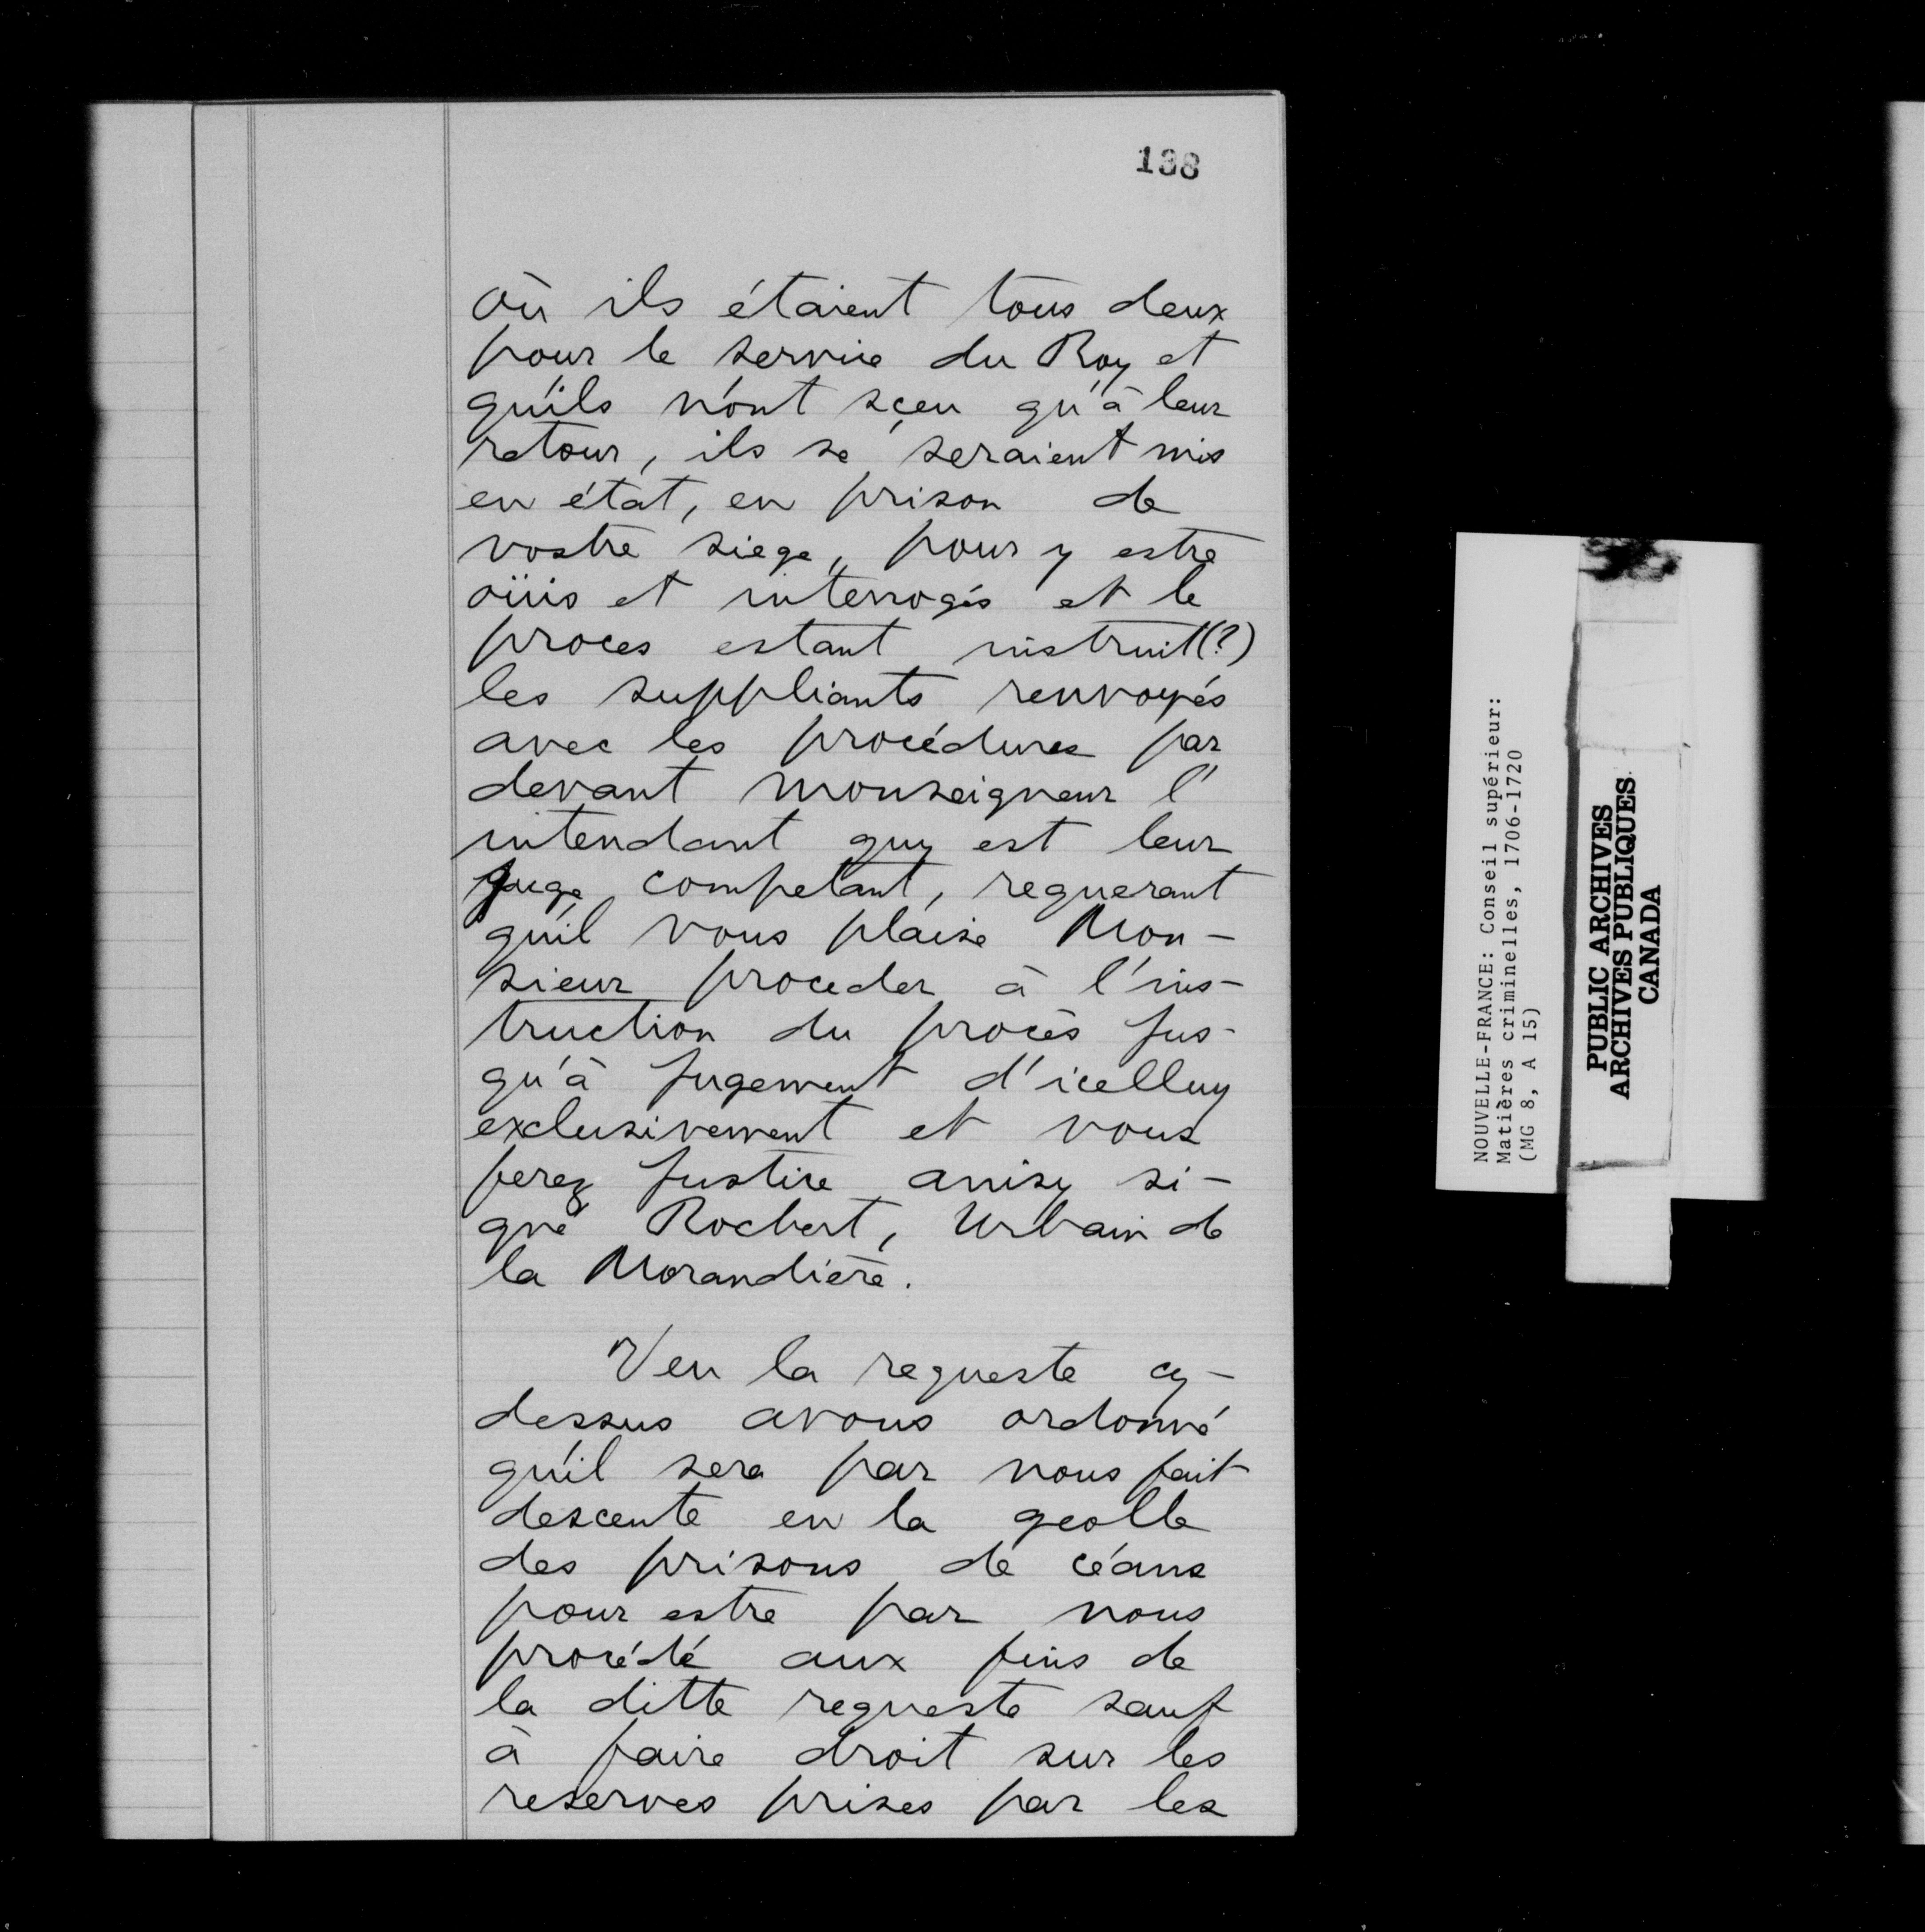 138
où ils étaient tous deux
pour le service du Roy et
qu'ils n'ont sçeu qu'à leur
retour, ils se seraient mis
en état, en prison de
vostre siege, pour y estre
oüis et interrogés et le
proces estant instruit(?)
les suppliants renvoyés
avec les procédures par
devant monseigneur l'
intendant quy est leur
juge competant, requerant
qu'il vous plaise Mon-
sieur proceder à l'ins-
truction du procès jus-
qu'à jugement d'icelluy
exclusivement et vous
ferez justice ainsy si-
gné Rochert, Urbain de
la Morandière.
Veu la requeste cy-
dessus avons ordonné
qu'il sera par nous fait
descente en la geolle
des prisons de céans
pour estre par nous
procédé aux fins de
la ditte requeste sauf
à faire droit sur les
reserves prises par les
NOUVELLE-FRANCE: Conseil supérieur:
Matières criminelles, 1706-1720
(MG 8, A 15)
PUBLIC ARCHIVES
ARCHIVES PUBLIQUES
CANADA